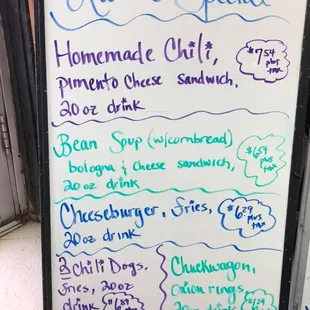 Special
Homemade Chili,
pimento Cheese sandwich,
20 oz drink
$7.54
plus
tax
Bean Soup (w/cornbread)
bologna & cheese sandwich,
20 oz drink
$6.59
plus
tax
Cheeseburger, fries,
20 oz drink
$6.29
plus
tax
2 Chili Dogs,
fries, 20oz
drink
plus
Chuckwagon,
onion rings,